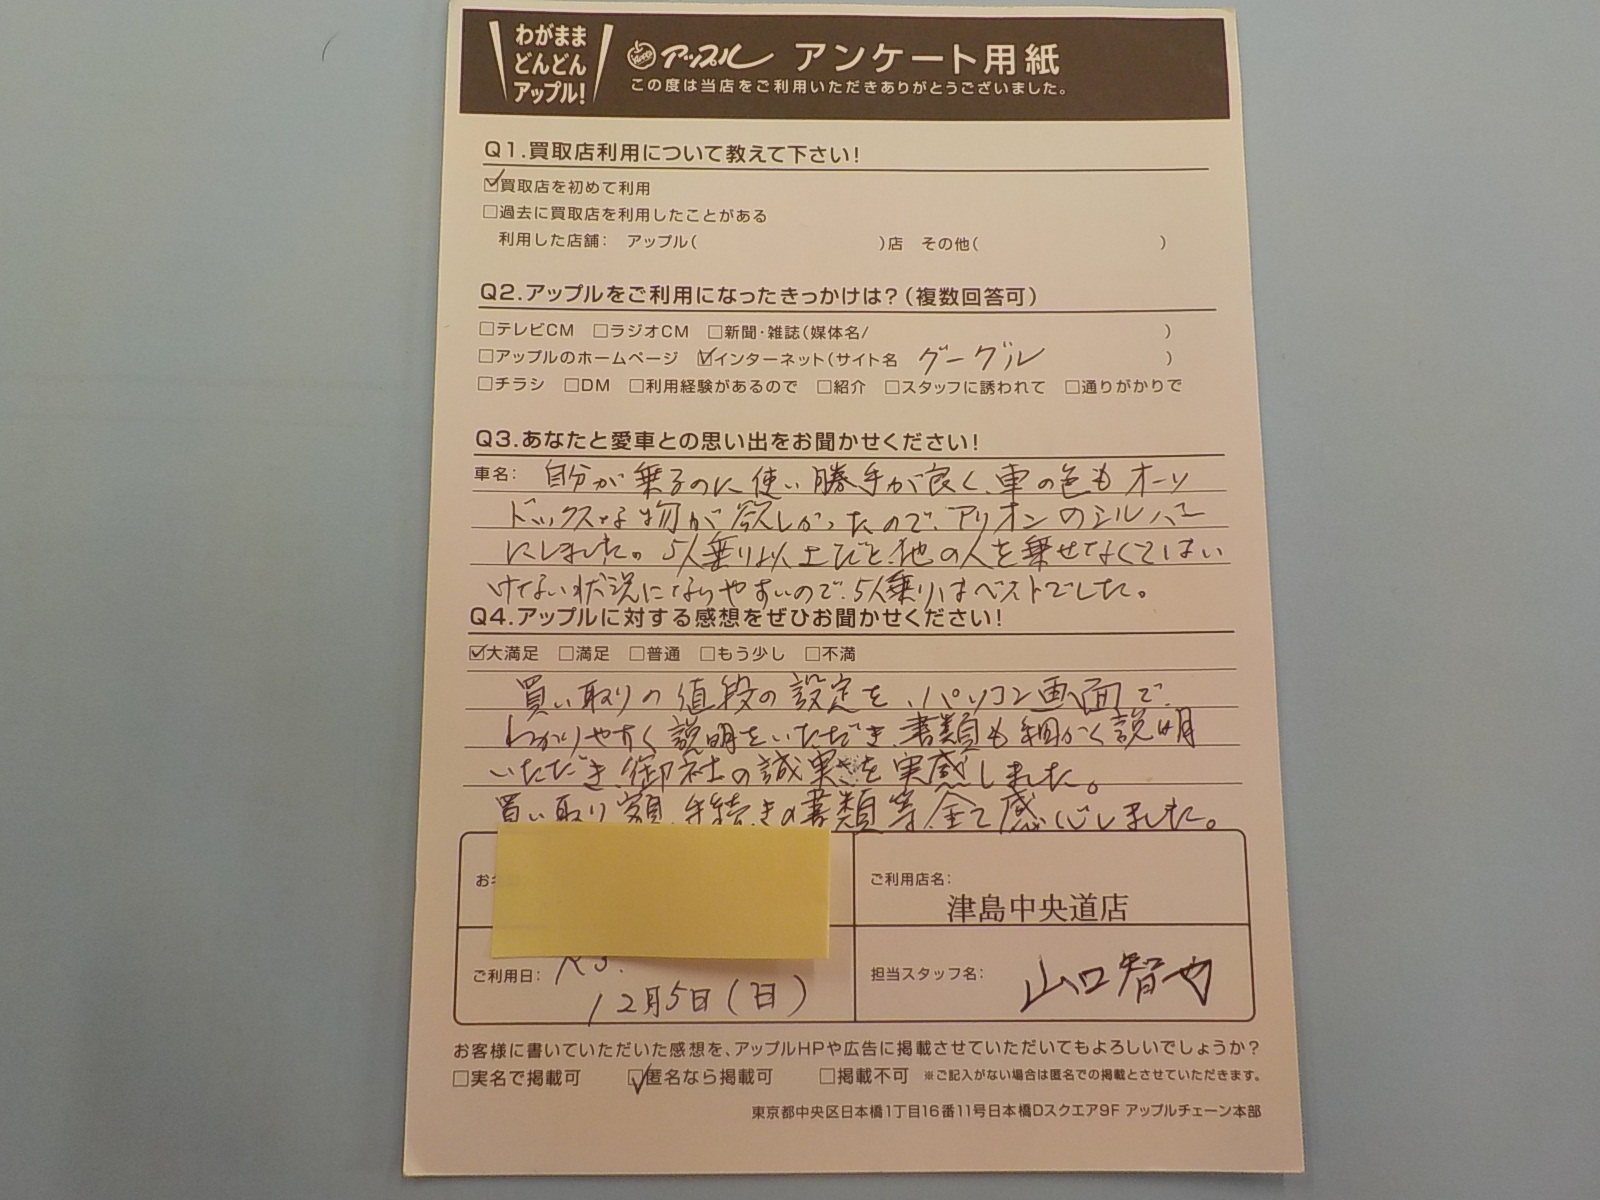 わがまま
どんどん
アップル!
アップル アンケート用紙
この度は当店をご利用いただきありがとうございました。
Q1.買取店利用について教えて下さい!
☑買取店を初めて利用
□過去に買取店を利用したことがある
利用した店舗: アップル( )店 その他( )
Q2.アップルをご利用になったきっかけは?(複数回答可)
□テレビCM □ラジオCM □新聞・雑誌(媒体名/ )
□アップルのホームページ ☑インターネット(サイト名 グーグル )
□チラシ □DM □利用経験があるので □紹介 □スタッフに誘われて □通りがかりで
Q3.あなたと愛車との思い出をお聞かせください!
車名: 自分が乗るのに使い勝手が良く、車の色もオーソ
ドックスな物が欲しかったので、アリオンのシルバー
にしました。5人乗り以上だと、他の人を乗せなくてはい
けない状況になりやすいので、5人乗りはベストでした。
Q4.アップルに対する感想をぜひお聞かせください!
☑大満足 □満足 □普通 □もう少し □不満
買い取りの値段の設定を、パソコン画面で、
わかりやすく説明をいただき、書類も細かく説明
いただき、御社の誠実さを実感しました。
買い取り額、手続きの書類等、全て感心しました。
お
ご利用店名:
津島中央道店
ご利用日: R3.
12月5日(日)
担当スタッフ名: 山口智也
お客様に書いていただいた感想を、アップルHPや広告に掲載させていただいてもよろしいでしょうか?
□実名で掲載可 ☑匿名なら掲載可 □掲載不可 ※ご記入がない場合は匿名での掲載とさせていただきます。
東京都中央区日本橋1丁目16番11号日本橋Dスクエア9F アップルチェーン本部